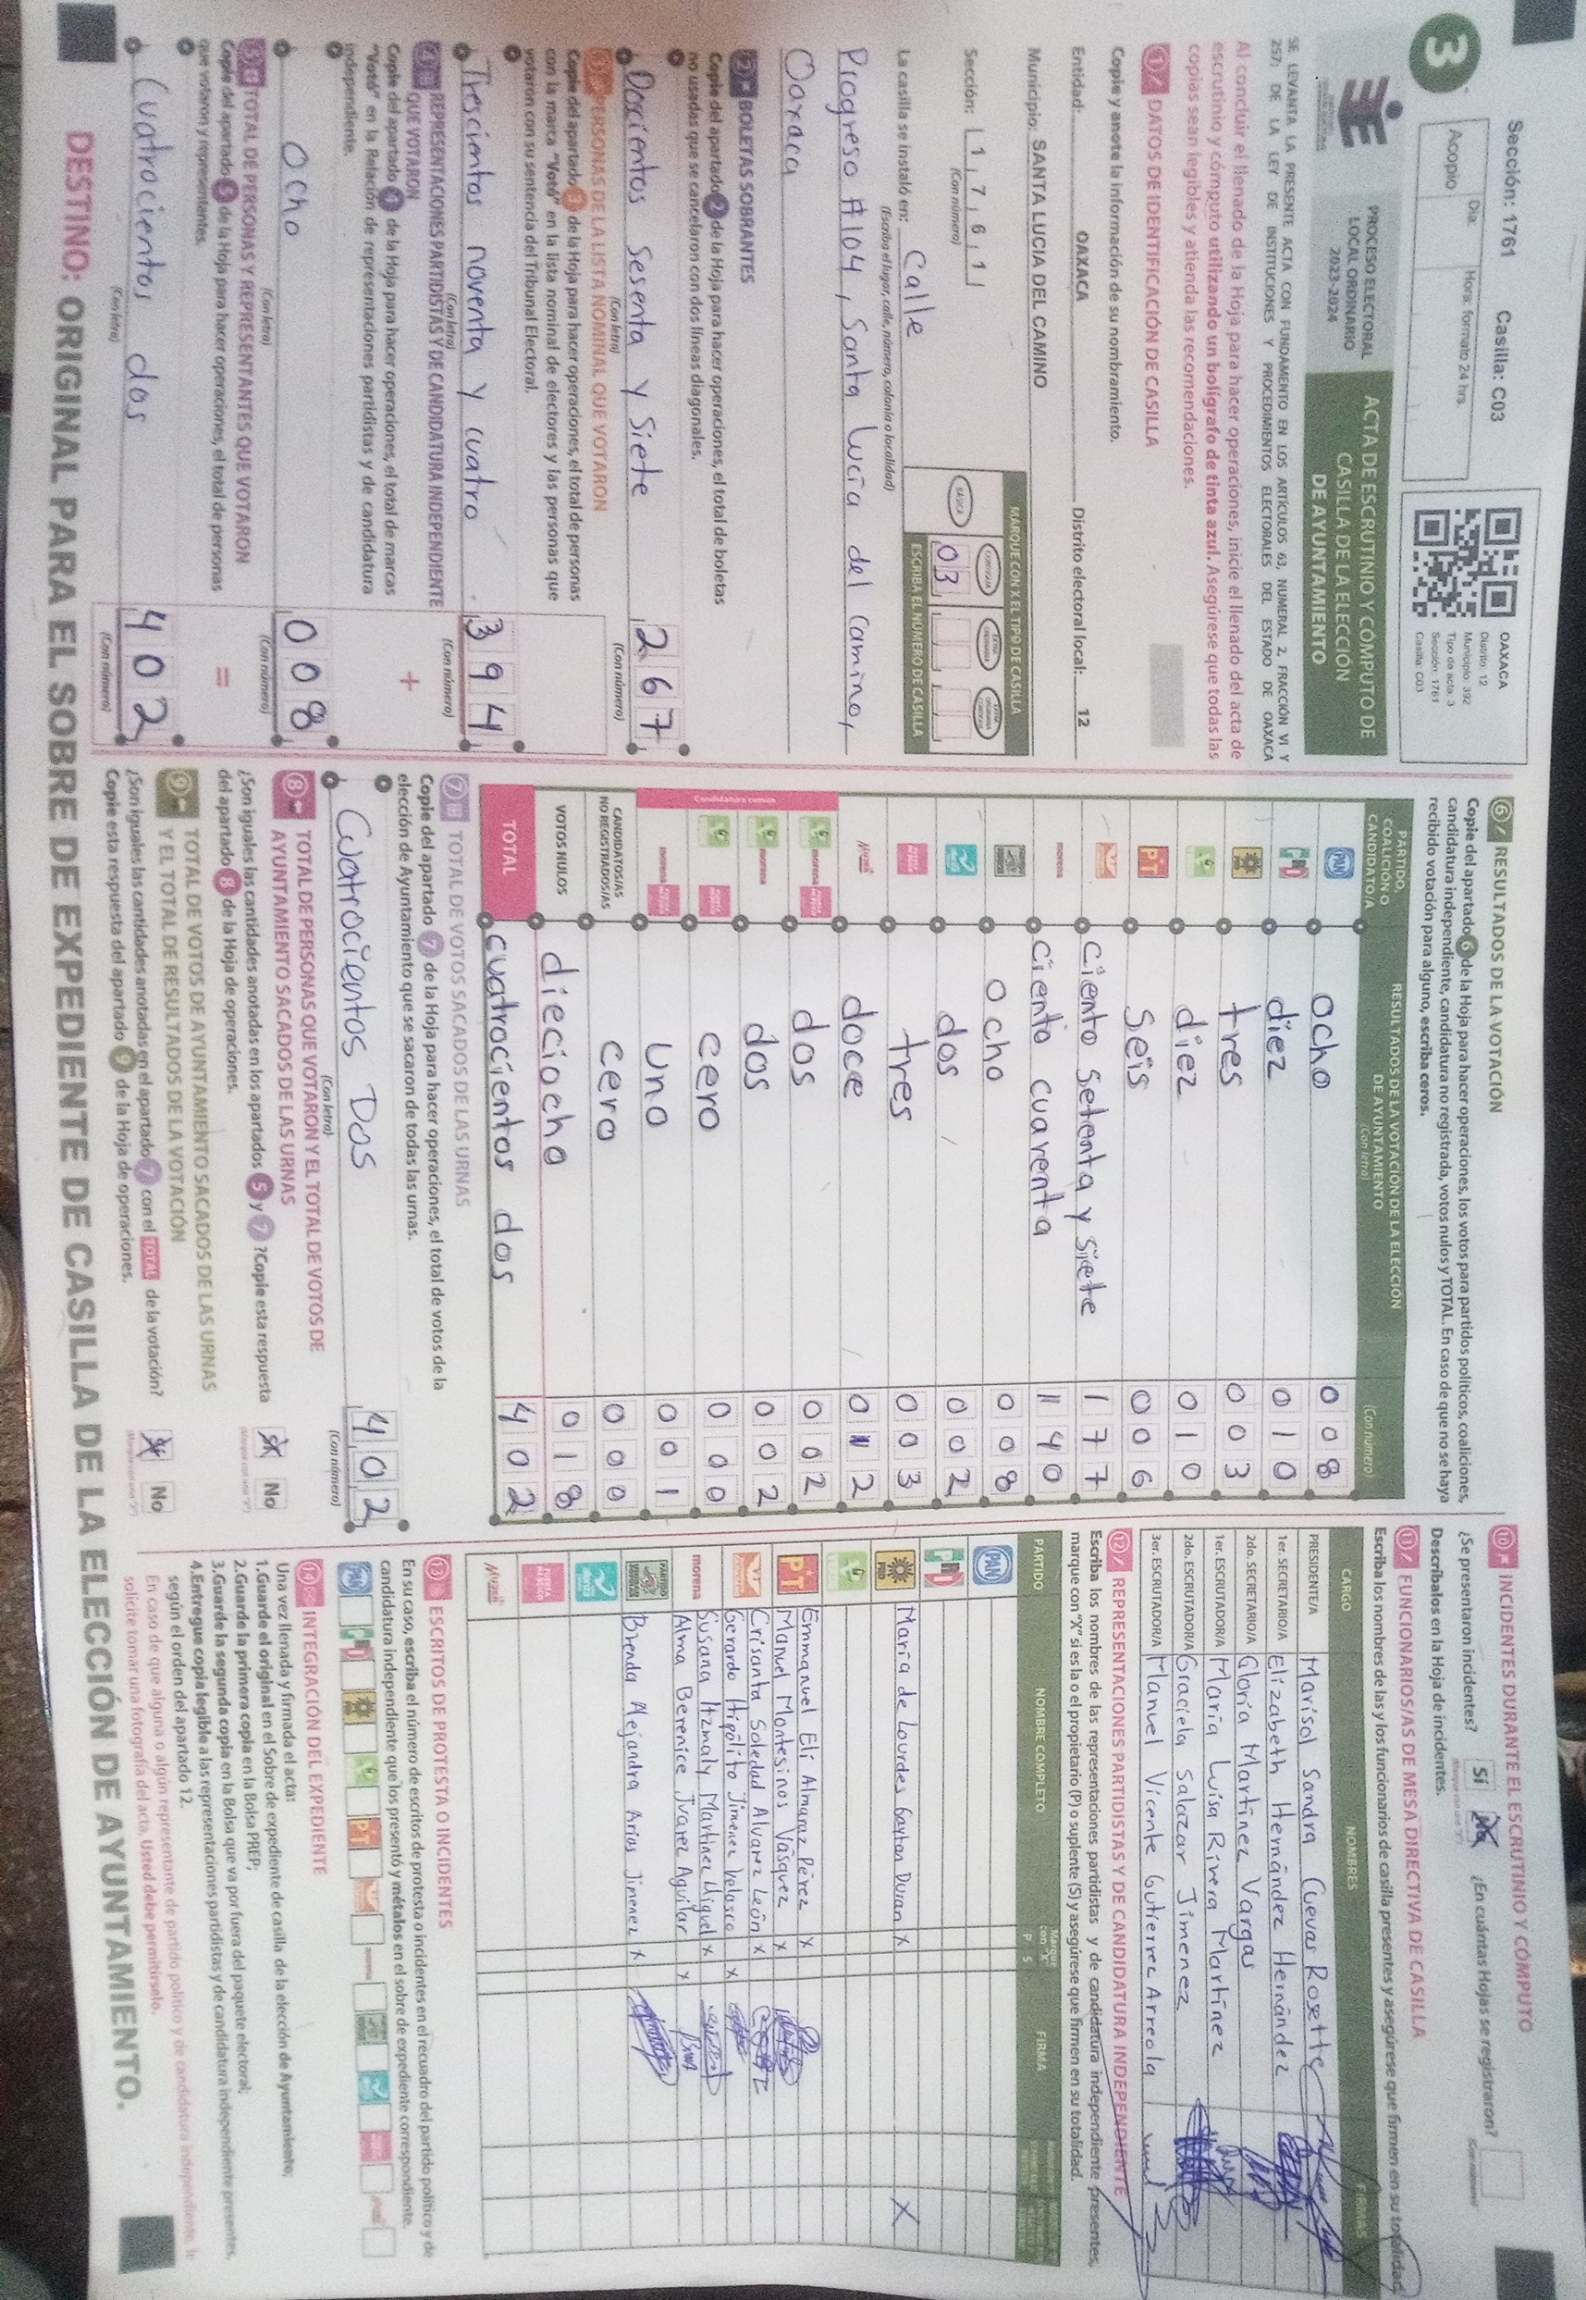 3
Sección: 1761 Casilla: C03
Acopio Día: Hora: formato 24 hrs.
OAXACA
Distrito: 12
Municipio: 392
Tipo de acta: 3
Sección: 1761
Casilla: C03
PROCESO ELECTORAL
LOCAL ORDINARIO
2023-2024
ACTA DE ESCRUTINIO Y CÓMPUTO DE
CASILLA DE LA ELECCIÓN
DE AYUNTAMIENTO
SE LEVANTA LA PRESENTE ACTA CON FUNDAMENTO EN LOS ARTÍCULOS 63, NUMERAL 2, FRACCIÓN VI Y
257; DE LA LEY DE INSTITUCIONES Y PROCEDIMIENTOS ELECTORALES DEL ESTADO DE OAXACA
Al concluir el llenado de la Hoja para hacer operaciones, inicie el llenado del acta de
escrutinio y cómputo utilizando un bolígrafo de tinta azul. Asegúrese que todas las
copias sean legibles y atienda las recomendaciones.
1 DATOS DE IDENTIFICACIÓN DE CASILLA
Copie y anote la información de su nombramiento.
Entidad: OAXACA Distrito electoral local: 12
Municipio: SANTA LUCIA DEL CAMINO
Sección: 1 7 6 1
(Con número)
MARQUE CON X EL TIPO DE CASILLA
BÁSICA CONTIGUA
03
ESCRIBA EL NÚMERO DE CASILLA
La casilla se instaló en: Calle
(Escriba el lugar, calle, número, colonia o localidad)
Progreso #104, Santa Lucía del Camino,
Oaxaca
2 BOLETAS SOBRANTES
Copie del apartado 2 de la Hoja para hacer operaciones, el total de boletas
no usadas que se cancelaron con dos líneas diagonales.
Docientos Sesenta y Siete 267
(Con letra) (Con número)
3 PERSONAS DE LA LISTA NOMINAL QUE VOTARON
Copie del apartado 3 de la Hoja para hacer operaciones, el total de personas
con la marca "Votó" en la lista nominal de electores y las personas que
votaron con su sentencia del Tribunal Electoral.
Trescientos noventa y cuatro 394
(Con letra) (Con número)
4 REPRESENTACIONES PARTIDISTAS Y DE CANDIDATURA INDEPENDIENTE
QUE VOTARON
Copie del apartado 4 de la Hoja para hacer operaciones, el total de marcas
"Votó" en la Relación de representaciones partidistas y de candidatura
independiente.
+
Ocho 008
(Con letra) (Con número)
5 TOTAL DE PERSONAS Y REPRESENTANTES QUE VOTARON
Copie del apartado 5 de la Hoja para hacer operaciones, el total de personas
que votaron y representantes.
=
Cuatrocientos dos 402
(Con letra) (Con número)
6 RESULTADOS DE LA VOTACIÓN
Copie del apartado 6 de la Hoja para hacer operaciones, los votos para partidos políticos, coaliciones,
candidatura independiente, candidatura no registrada, votos nulos y TOTAL. En caso de que no se haya
recibido votación para alguno, escriba ceros.
PARTIDO,
COALICIÓN O
CANDIDATO/A
RESULTADOS DE LA VOTACIÓN DE LA ELECCIÓN
DE AYUNTAMIENTO
(Con letra) (Con número)
PAN ocho 008
PRI diez 010
tres 003
diez 010
PT seis 006
Ciento Setenta y siete 177
morena Ciento cuarenta 140
ocho 008
dos 002
tres 003
doce 012
Candidatura común
morena dos 002
morena dos 002
cero 000
morena Uno 001
CANDIDATOS/AS
NO REGISTRADOS/AS cero 000
VOTOS NULOS dieciocho 018
TOTAL cuatrocientos dos 402
7 TOTAL DE VOTOS SACADOS DE LAS URNAS
Copie del apartado 7 de la Hoja para hacer operaciones, el total de votos de la
elección de Ayuntamiento que se sacaron de todas las urnas.
Cuatrocientos Dos 402
(Con letra) (Con número)
8 TOTAL DE PERSONAS QUE VOTARON Y EL TOTAL DE VOTOS DE
AYUNTAMIENTO SACADOS DE LAS URNAS
¿Son iguales las cantidades anotadas en los apartados 5 y 7 ?Copie esta respuesta
del apartado 8 de la Hoja de operaciones.
No
9 TOTAL DE VOTOS DE AYUNTAMIENTO SACADOS DE LAS URNAS
Y EL TOTAL DE RESULTADOS DE LA VOTACIÓN
¿Son iguales las cantidades anotadas en el apartado 7 con el TOTAL de la votación?
Copie esta respuesta del apartado 9 de la Hoja de operaciones.
No
10 INCIDENTES DURANTE EL ESCRUTINIO Y CÓMPUTO
¿Se presentaron incidentes? Sí ¿En cuántas Hojas se registraron?
Descríbalos en la Hoja de incidentes.
11 FUNCIONARIOS/AS DE MESA DIRECTIVA DE CASILLA
Escriba los nombres de las y los funcionarios de casilla presentes y asegúrese que firmen en su totalidad.
CARGO NOMBRES FIRMAS
PRESIDENTE/A Marisol Sandra Cuevas Rosette
1er. SECRETARIO/A Elizabeth Hernández Hernández
2do. SECRETARIO/A Gloria Martínez Vargas
1er. ESCRUTADOR/A María Luisa Rivera Martínez
2do. ESCRUTADOR/A Graciela Salazar Jimenez
3er. ESCRUTADOR/A Manuel Vicente Gutierrez Arreola
12 REPRESENTACIONES PARTIDISTAS Y DE CANDIDATURA INDEPENDIENTE
Escriba los nombres de las representaciones partidistas y de candidatura independiente presentes,
marque con "X" si es la o el propietario (P) o suplente (S) y asegúrese que firmen en su totalidad.
PARTIDO NOMBRE COMPLETO Marque con "X" P S FIRMA
PAN
PRI
PRD María de Lourdes Gayton Duran X X
Emmanuel Elí Almaraz Pérez X
PT Manuel Montesinos Vásquez X
Crisanta Soledad Alvarez León X
Gerardo Hipólito Jimenez Velasco X
morena Susana Itzmaly Martinez Miguel X
Alma Berenice Juarez Aguilar X
Brenda Alejandra Arias Jimenez X
13 ESCRITOS DE PROTESTA O INCIDENTES
En su caso, escriba el número de escritos de protesta o incidentes en el recuadro del partido político y de
candidatura independiente que los presentó y métalos en el sobre de expediente correspondiente.
PAN PRI PT morena
14 INTEGRACIÓN DEL EXPEDIENTE
Una vez llenada y firmada el acta:
1.Guarde el original en el Sobre de expediente de casilla de la elección de Ayuntamiento;
2.Guarde la primera copia en la Bolsa PREP;
3.Guarde la segunda copia en la Bolsa que va por fuera del paquete electoral;
4.Entregue copia legible a las representaciones partidistas y de candidatura independiente presentes,
según el orden del apartado 12.
En caso de que alguna o algún representante de partido político y de candidatura independiente, le
solicite tomar una fotografía del acta, Usted debe permitírselo.
DESTINO: ORIGINAL PARA EL SOBRE DE EXPEDIENTE DE CASILLA DE LA ELECCIÓN DE AYUNTAMIENTO.